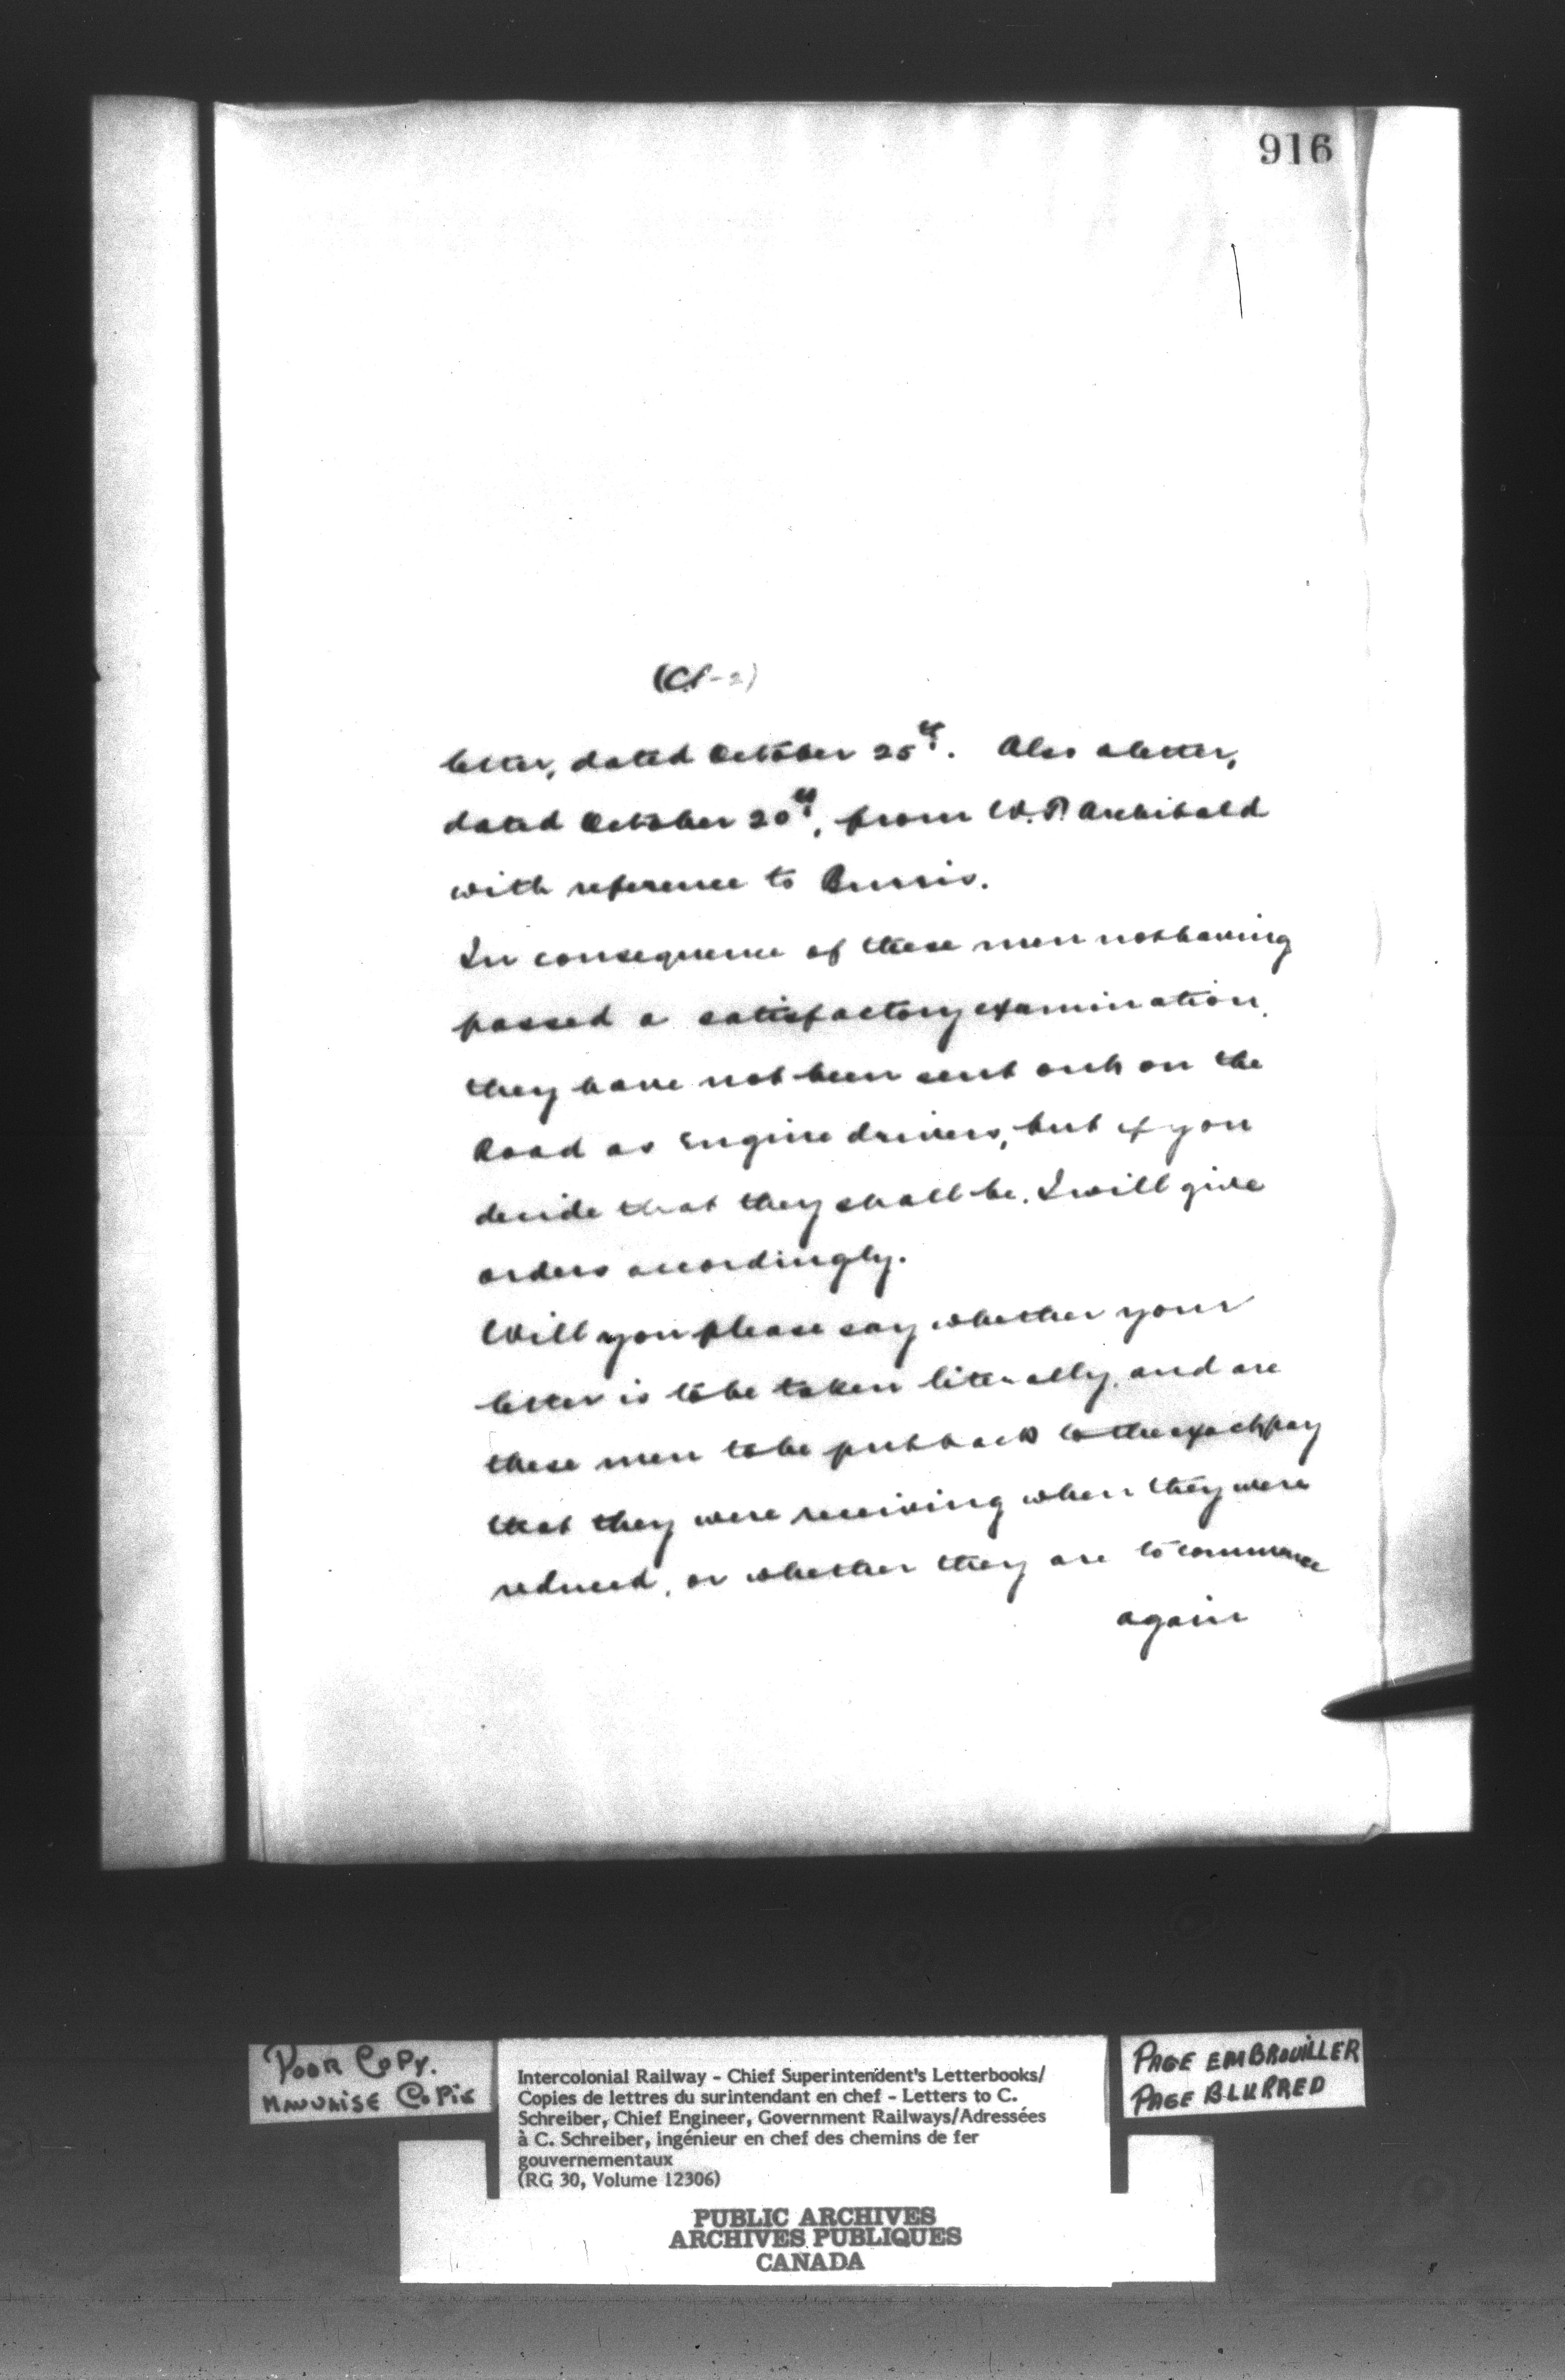 916
letter, dated October 25th. Also a letter,
dated October 20th, from W.P. Archibald
with reference to
In consequence of these men not having
passed a satisfactory examination,
they have not been sent out on the
Road as Engine drivers, but if you
decide that they shall be, I will give
orders accordingly.
Will you please say whether your
letter is to be taken literally, and are
these men to be put back to the exact pay
that they were receiving when they were
reduced, or whether they are to commence
again
POOR COPY.
MAUVAISE COPIE
Intercolonial Railway - Chief Superintendent's Letterbooks/
Copies de lettres du surintendant en chef - Letters to C.
Schreiber, Chief Engineer, Government Railways/Adressées
à C. Schreiber, ingénieur en chef des chemins de fer
gouvernementaux
(RG 30, Volume 12306)
PAGE EMBROUILLER
PAGE BLURRED
PUBLIC ARCHIVES
ARCHIVES PUBLIQUES
CANADA